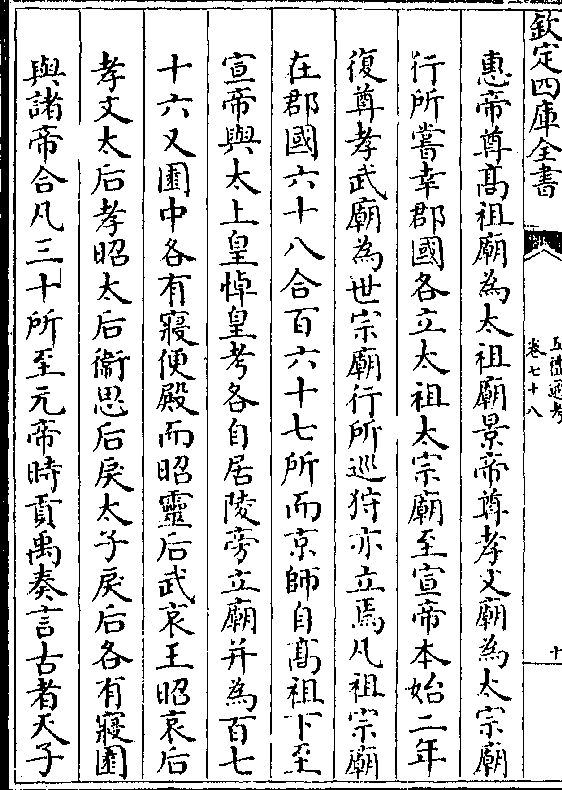 欽定四庫全書
五禮通考
卷七十八
十
惠帝尊髙祖廟為太祖廟景帝尊孝文廟為太宗廟
行所嘗幸郡國各立太祖太宗廟至宣帝本始二年
復尊孝武廟為世宗廟行所巡狩亦立焉凡祖宗廟
在郡國六十八合百六十七所而京師自髙祖下至
宣帝與太上皇悼皇考各自居陵旁立廟并為百七
十六又園中各有寢便殿而昭靈后武哀王昭哀后
孝文太后孝昭太后衞思后戾太子戾后各有寢園
與諸帝合凡三十所至元帝時貢禹奏言古者天子